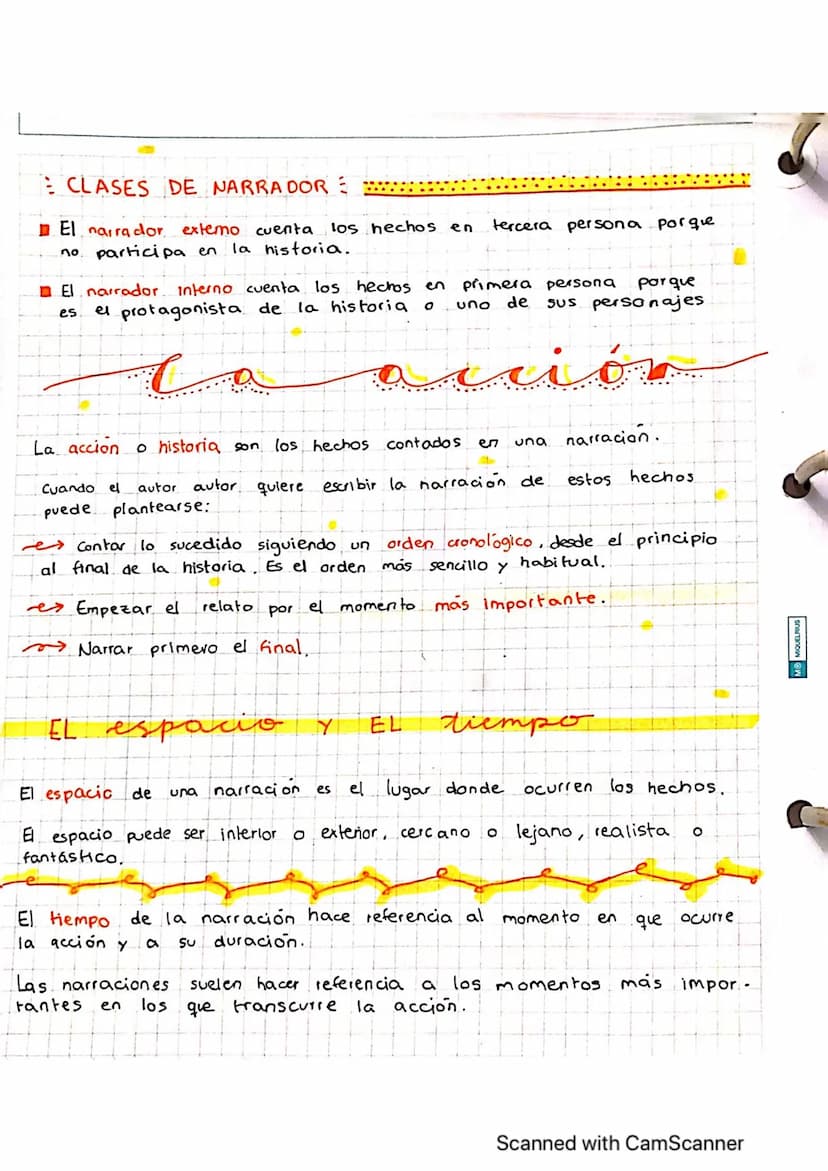 CLASES DE NARRADOR
El narrador externo cuenta los hechos en tercera persona porque
no participa en la historia.
El narrador interno cuenta los hechos en primera persona porque
es el protagonista de la historia o uno de sus personajes
La acción
La acción o historia son los hechos contados en una narración.
Cuando el autor autor quiere escribir la narración de estos hechos
puede plantearse:
Contar lo sucedido siguiendo un orden cronológico, desde el principio
al final de la historia. Es el orden más sencillo y habitual.
Empezar el relato por el momento más importante.
Narrar primero el final.
EL espacio Y EL tiempo
El espacio de una narración es el lugar donde ocurren los hechos.
El espacio puede ser interior o exterior, cercano o lejano, realista o
fantástico.
El tiempo de la narración hace referencia al momento en que ocurre
la acción y a su duración.
Las narraciones suelen hacer referencia a los momentos más impor-
tantes en los que transcurre la acción.
MIQUELRIUS
Scanned with CamScanner